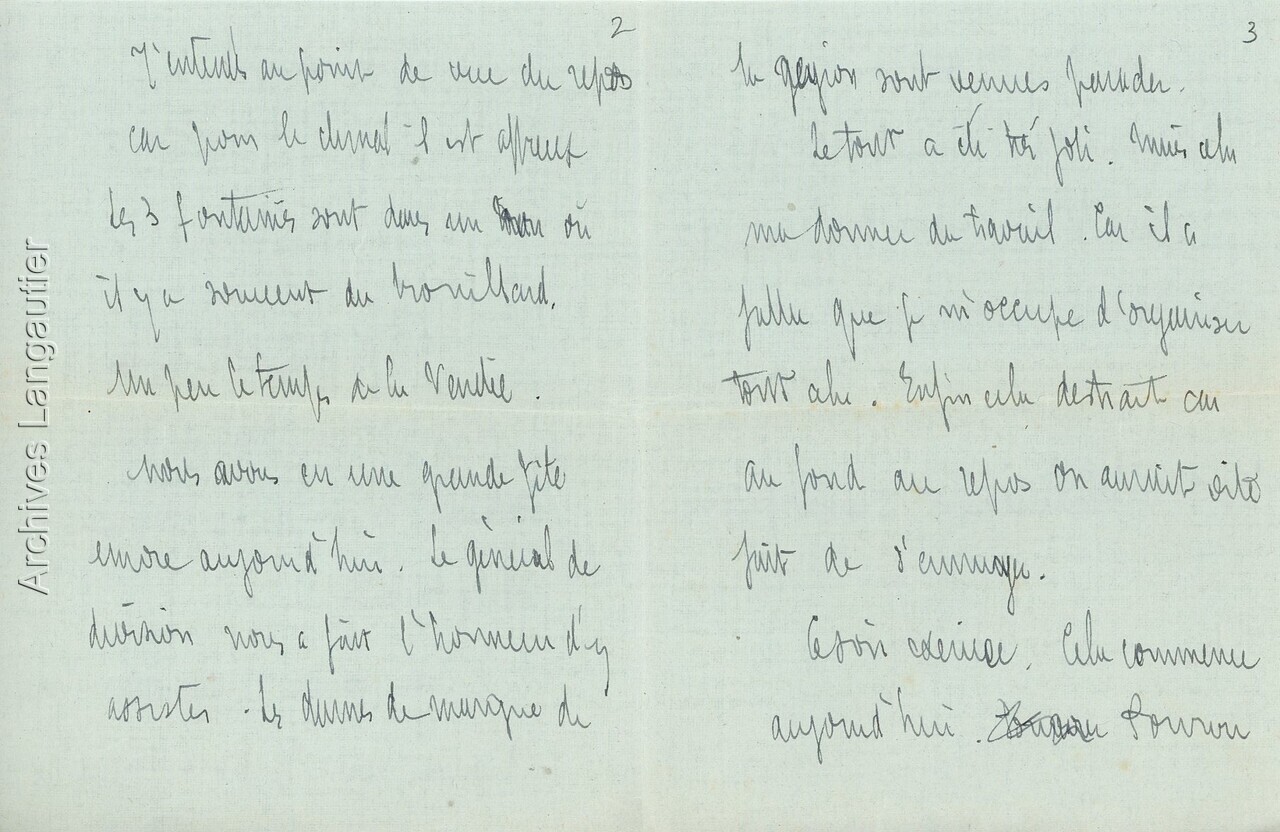 2
J'entends au point de vue du repos
car pour le climat il est affreux
Les 3 fontaines sont dans un où
il y a souvent du brouillard.
Un peu le temps de la Vendée.
Nous avons eu une grande fête
encore aujourd'hui. Le général de
division nous a fait l'honneur d'y
assister. Les dames de marque de
3
la région sont venues parader.
Le tout a été très joli. Mais cela
m'a donner du travail. Car il a
fallu que je m'occupe d'organiser
tout cela. Enfin cela destrait car
au fond au repos on aurait vite
fait de s'ennuyer.
Ce soir exercice. Cela commence
aujourd'hui.
Archives Langautier